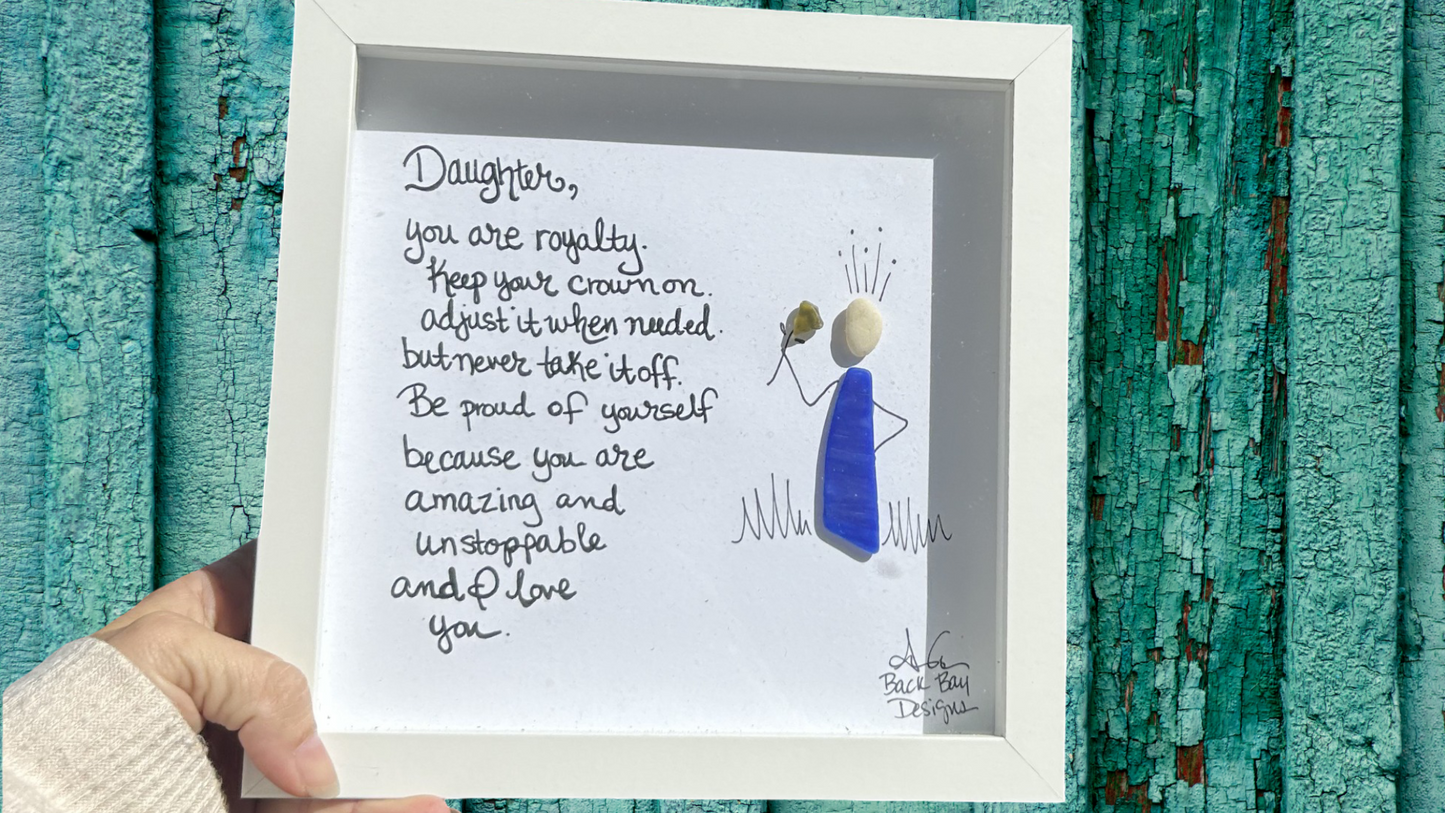 Daughter,
you are royalty.
Keep your crown on.
adjust it when needed.
but never take it off.
Be proud of yourself
because you are
amazing and
unstoppable
and I love
you.
Back Bay
Designs